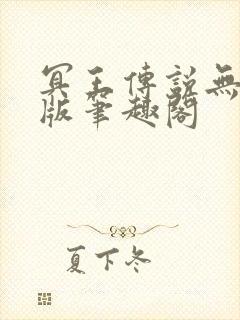 冥王傳說無
版筆趣閣
夏下冬